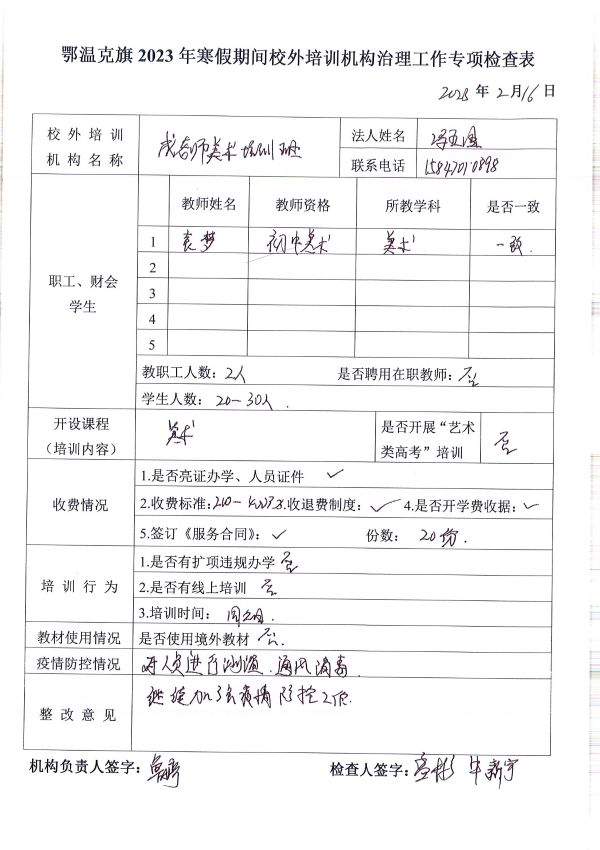 鄂温克旗2023年寒假期间校外培训机构治理工作专项检查表
2023年2月16日
校外培训机构名称 美术培训班 法人姓名
联系电话 15847010898
职工、财会学生
教师姓名 教师资格 所教学科 是否一致
1 袁梦 初中美术 美术 一致.
2
3
4
5
教职工人数：2人 是否聘用在职教师：否
学生人数：20-30人.
开设课程（培训内容） 美术 是否开展“艺术类高考”培训 否
收费情况
1.是否亮证办学、人员证件 ✓
2.收费标准： 3.收退费制度：✓ 4.是否开学费收据：✓
5.签订《服务合同》：✓ 份数：20份.
培训行为
1.是否有扩项违规办学 否
2.是否有线上培训 否
3.培训时间：
教材使用情况 是否使用境外教材 否.
疫情防控情况 对人员进行测温.通风消毒.
整改意见 继续加强疫情防控工作.
机构负责人签字： 检查人签字：